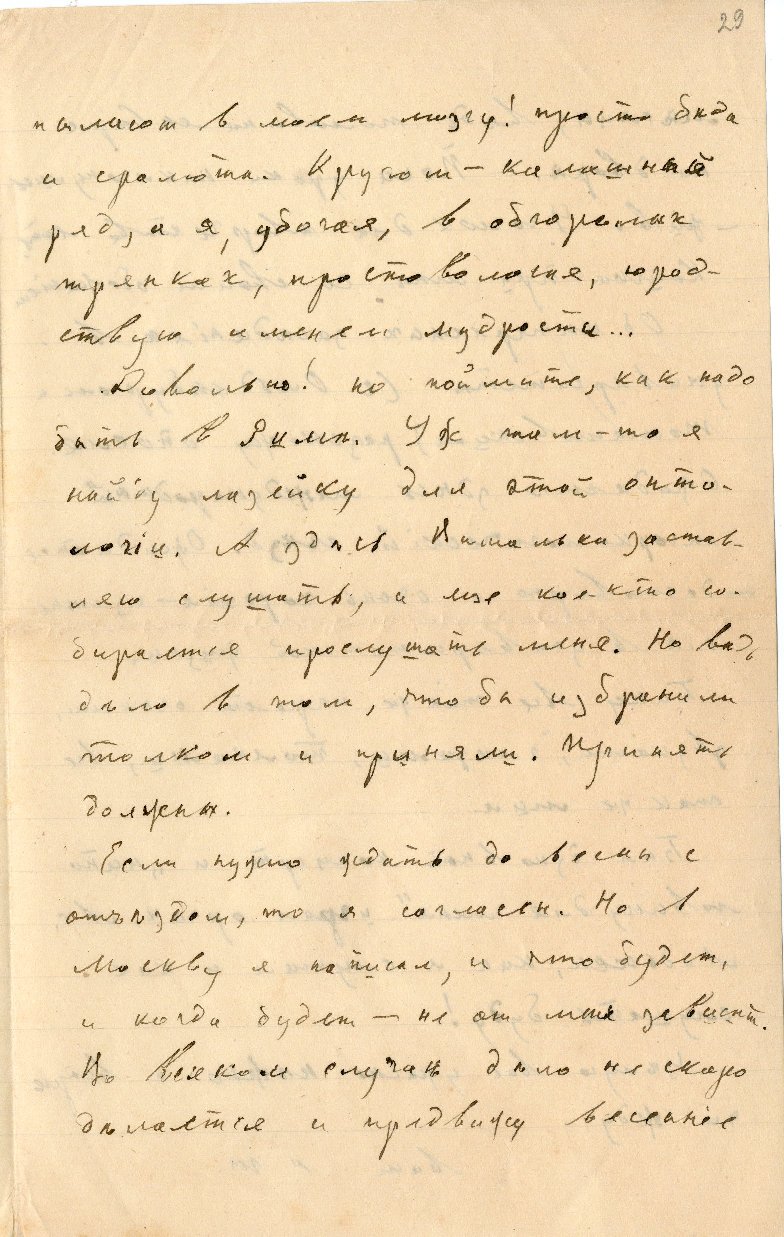 29
пылают в моем мозгу! просто беда
и срамота. Кругом – калашный
ряд, а я, убогая, в обгорелых
тряпках, простоволосая, юрод-
ствую именем мудрости...
Довольно! но поймите, как надо
быть в Римѣ. Уж там-то я
найду лазейку для этой онто-
логіи. А здѣсь застав-
ляю слушать, а мѣ кое-кто со-
бирается прослушать меня. Но вѣдь
дѣло в том, чтобы избранили
толком и приняли. Принять
должны.
Если нужно ждать до весны с
отъѣздом, то я согласен. Но в
Москву я написал, и что будет,
и когда будет – не от меня зависит.
Во всяком случаѣ дѣло не скоро
дѣлается и предвижу весеннее